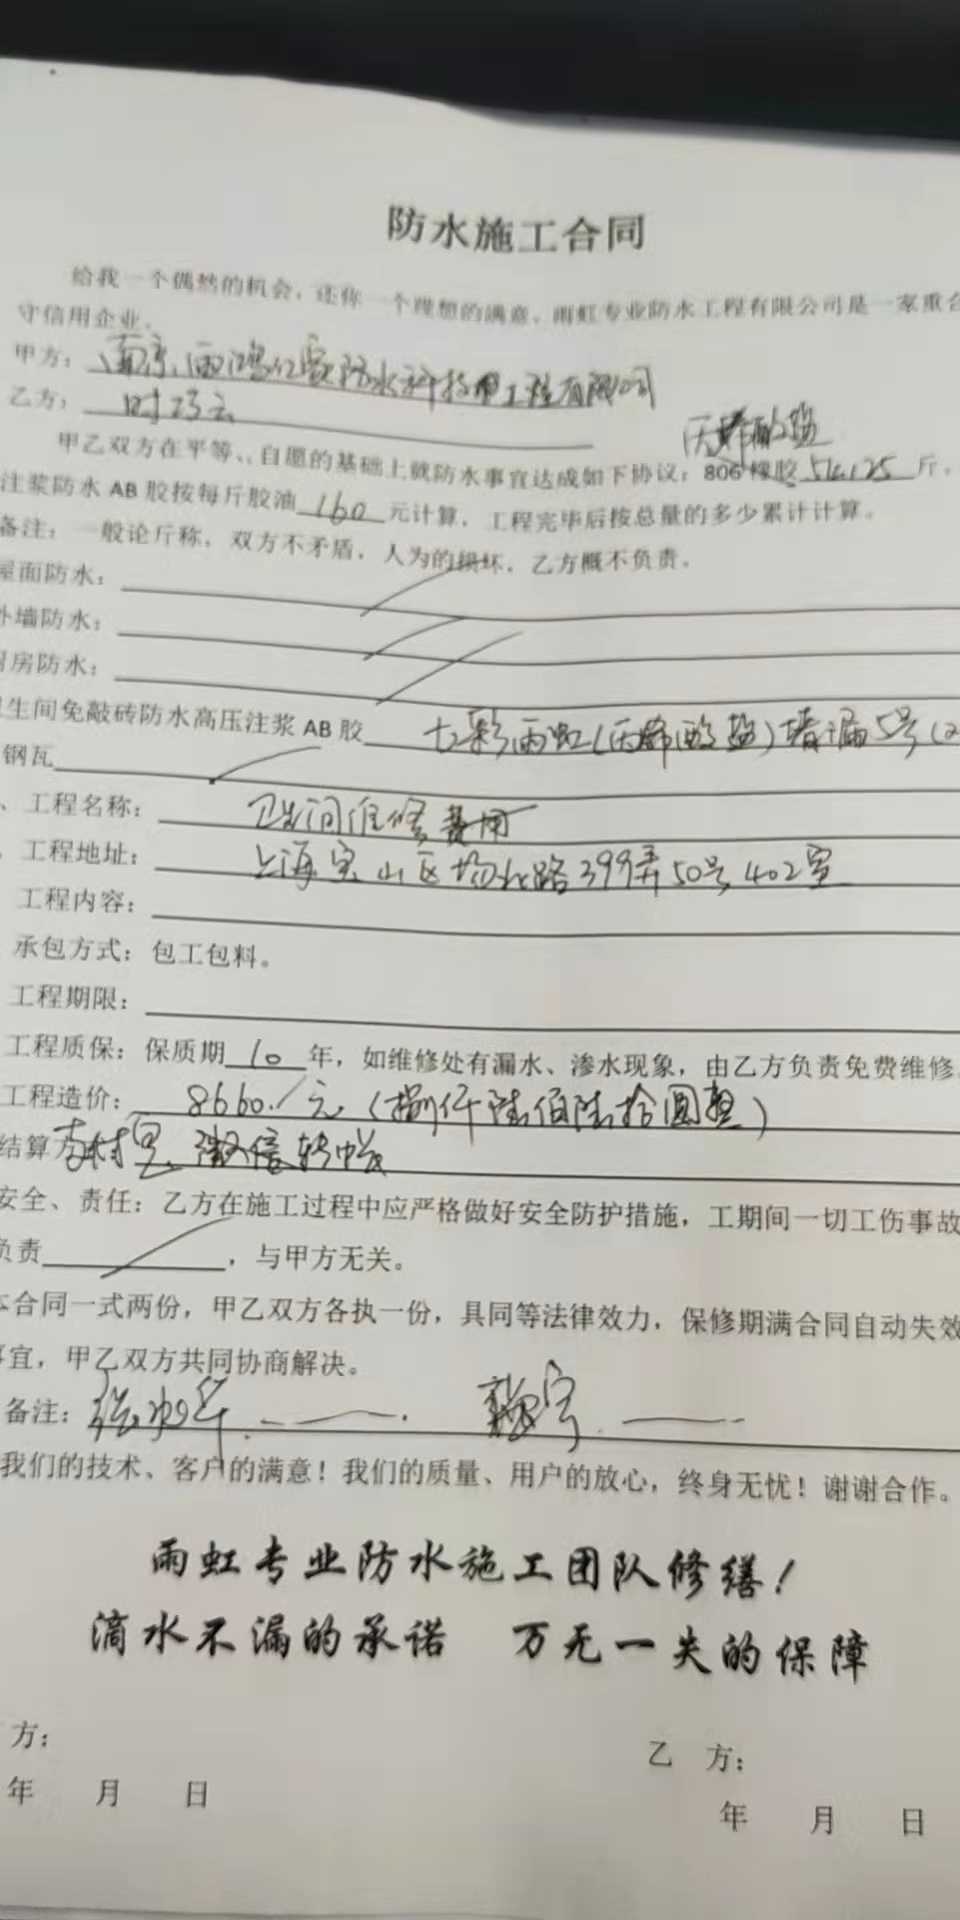 防水施工合同
给我一个偶然的机会，还你一个理想的满意。雨虹专业防水工程有限公司是一家重合
守信用企业。
甲方：南京雨鸿亿宾防水科技工程有限公司
乙方：时巧云
丙烯酸盐
甲乙双方在平等、、自愿的基础上就防水事宜达成如下协议：806 橡胶 54.125 斤，
注浆防水 AB 胶按每斤胶油 160 元计算，工程完毕后按总量的多少累计计算。
备注：一般论斤称，双方不矛盾，人为的损坏，乙方概不负责。
屋面防水：
外墙防水：
厨房防水：
卫生间免敲砖防水高压注浆 AB 胶 七彩雨虹(丙烯酸盐)堵漏5号(2
钢瓦
、工程名称：卫生间维修费用
、工程地址：上海宝山区场北路399弄50号402室
工程内容：
承包方式：包工包料。
工程期限：
工程质保：保质期 10 年，如维修处有漏水、渗水现象，由乙方负责免费维修
工程造价：8660./元(捌仟陆佰陆拾圆整)
结算方 支付宝、微信转帐
安全、责任：乙方在施工过程中应严格做好安全防护措施，工期间一切工伤事故
负责 ，与甲方无关。
本合同一式两份，甲乙双方各执一份，具同等法律效力，保修期满合同自动失效
事宜，甲乙双方共同协商解决。
备注：
我们的技术、客户的满意！我们的质量、用户的放心，终身无忧！谢谢合作。
雨虹专业防水施工团队修缮！
滴水不漏的承诺 万无一失的保障
方：
乙 方：
年 月 日
年 月 日